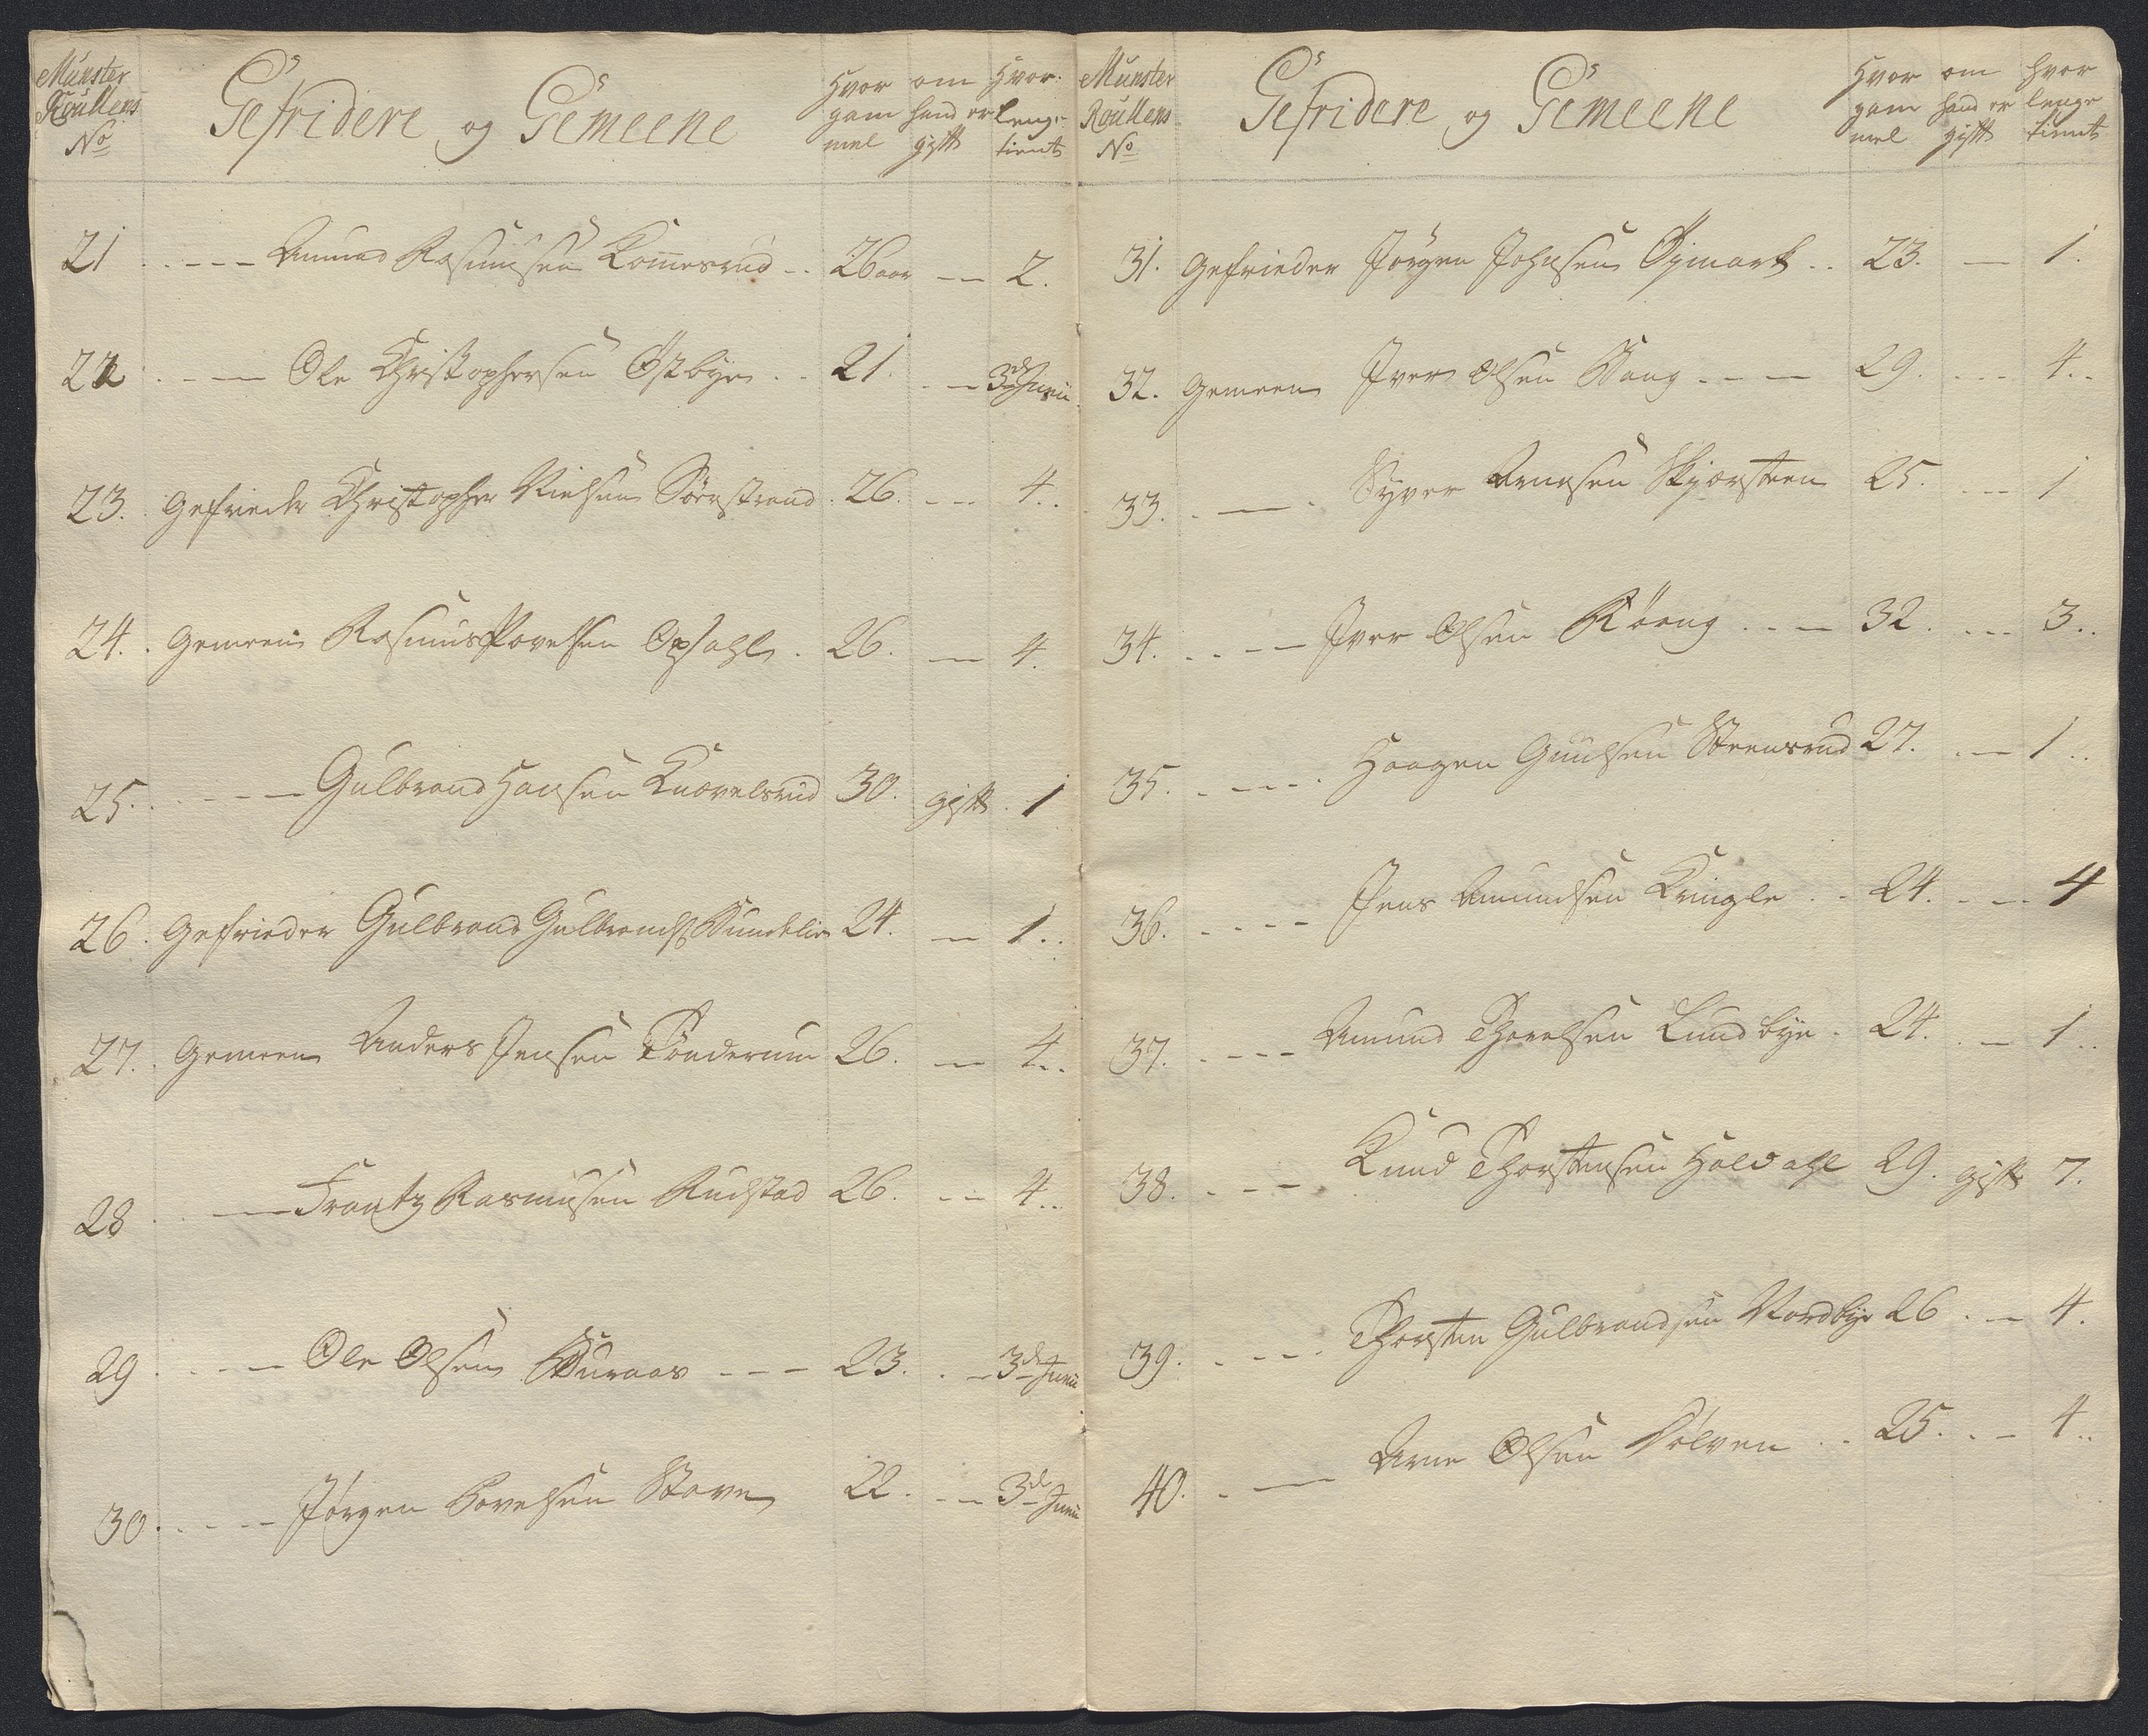 Munster Roullens No Gefridere og Gemeene Hvor gammel om hand er gift Hvor lenge tient
21 - - - Amund Rasmusen Komesrud - - 26 aar - - 2.
22 - - - Ole Christophersen Østbye - - 21. - - 3de Junii
23. Gefrieder Christopher Nielsen Sörstrand. 26. - - 4.
24. Gemeen Rasmus Povelsen Opsahl. 26. - 4.
25. - - - Gulbrand Hansen Knovelsrud 30. gift. 1
26. Gefrieder Gulbrand Gulbrands. Sundelie 24. - 1.
27. Gemeen Anders Jensen Tönderum 26. - 4.
28 - - Frantz Rasmusen Rudstad 26. - - 4.
29 - - - Ole Olsen Buraas - - - 23. - - 3de Junii
30. - - - Jörgen Povelsen Staven 22. - - 3de Junii
Munster Roullens No Gefridere og Gemeene Hvor gammel om hand er gift hvor lenge tient
31. Gefrieder Jörgen Johnsen Öymark - - 23. - 1.
32. Gemeen Iver Olsen Haug - - - 29. - - 4.
33. - - Syver Arnesen Skjørsteen 25. - - 1
34. - - - Iver Olsen Röeng - - - 32. - - 3.
35. - - - Haagen Gundsen Steensrud 27. - - 1
36. - - - Jens Amundsen Kringle - - 24. - - 4
37. - - - Amund Thorelsen Lundbye. 24. - - 1
38. - - - Knud Thorstensen Holdahl 29. gift 7.
39. - - - Thorsten Gulbrandsen Nordbye 26. - 4.
40. - - Arne Olsen Sölven - - 25. - - 4.